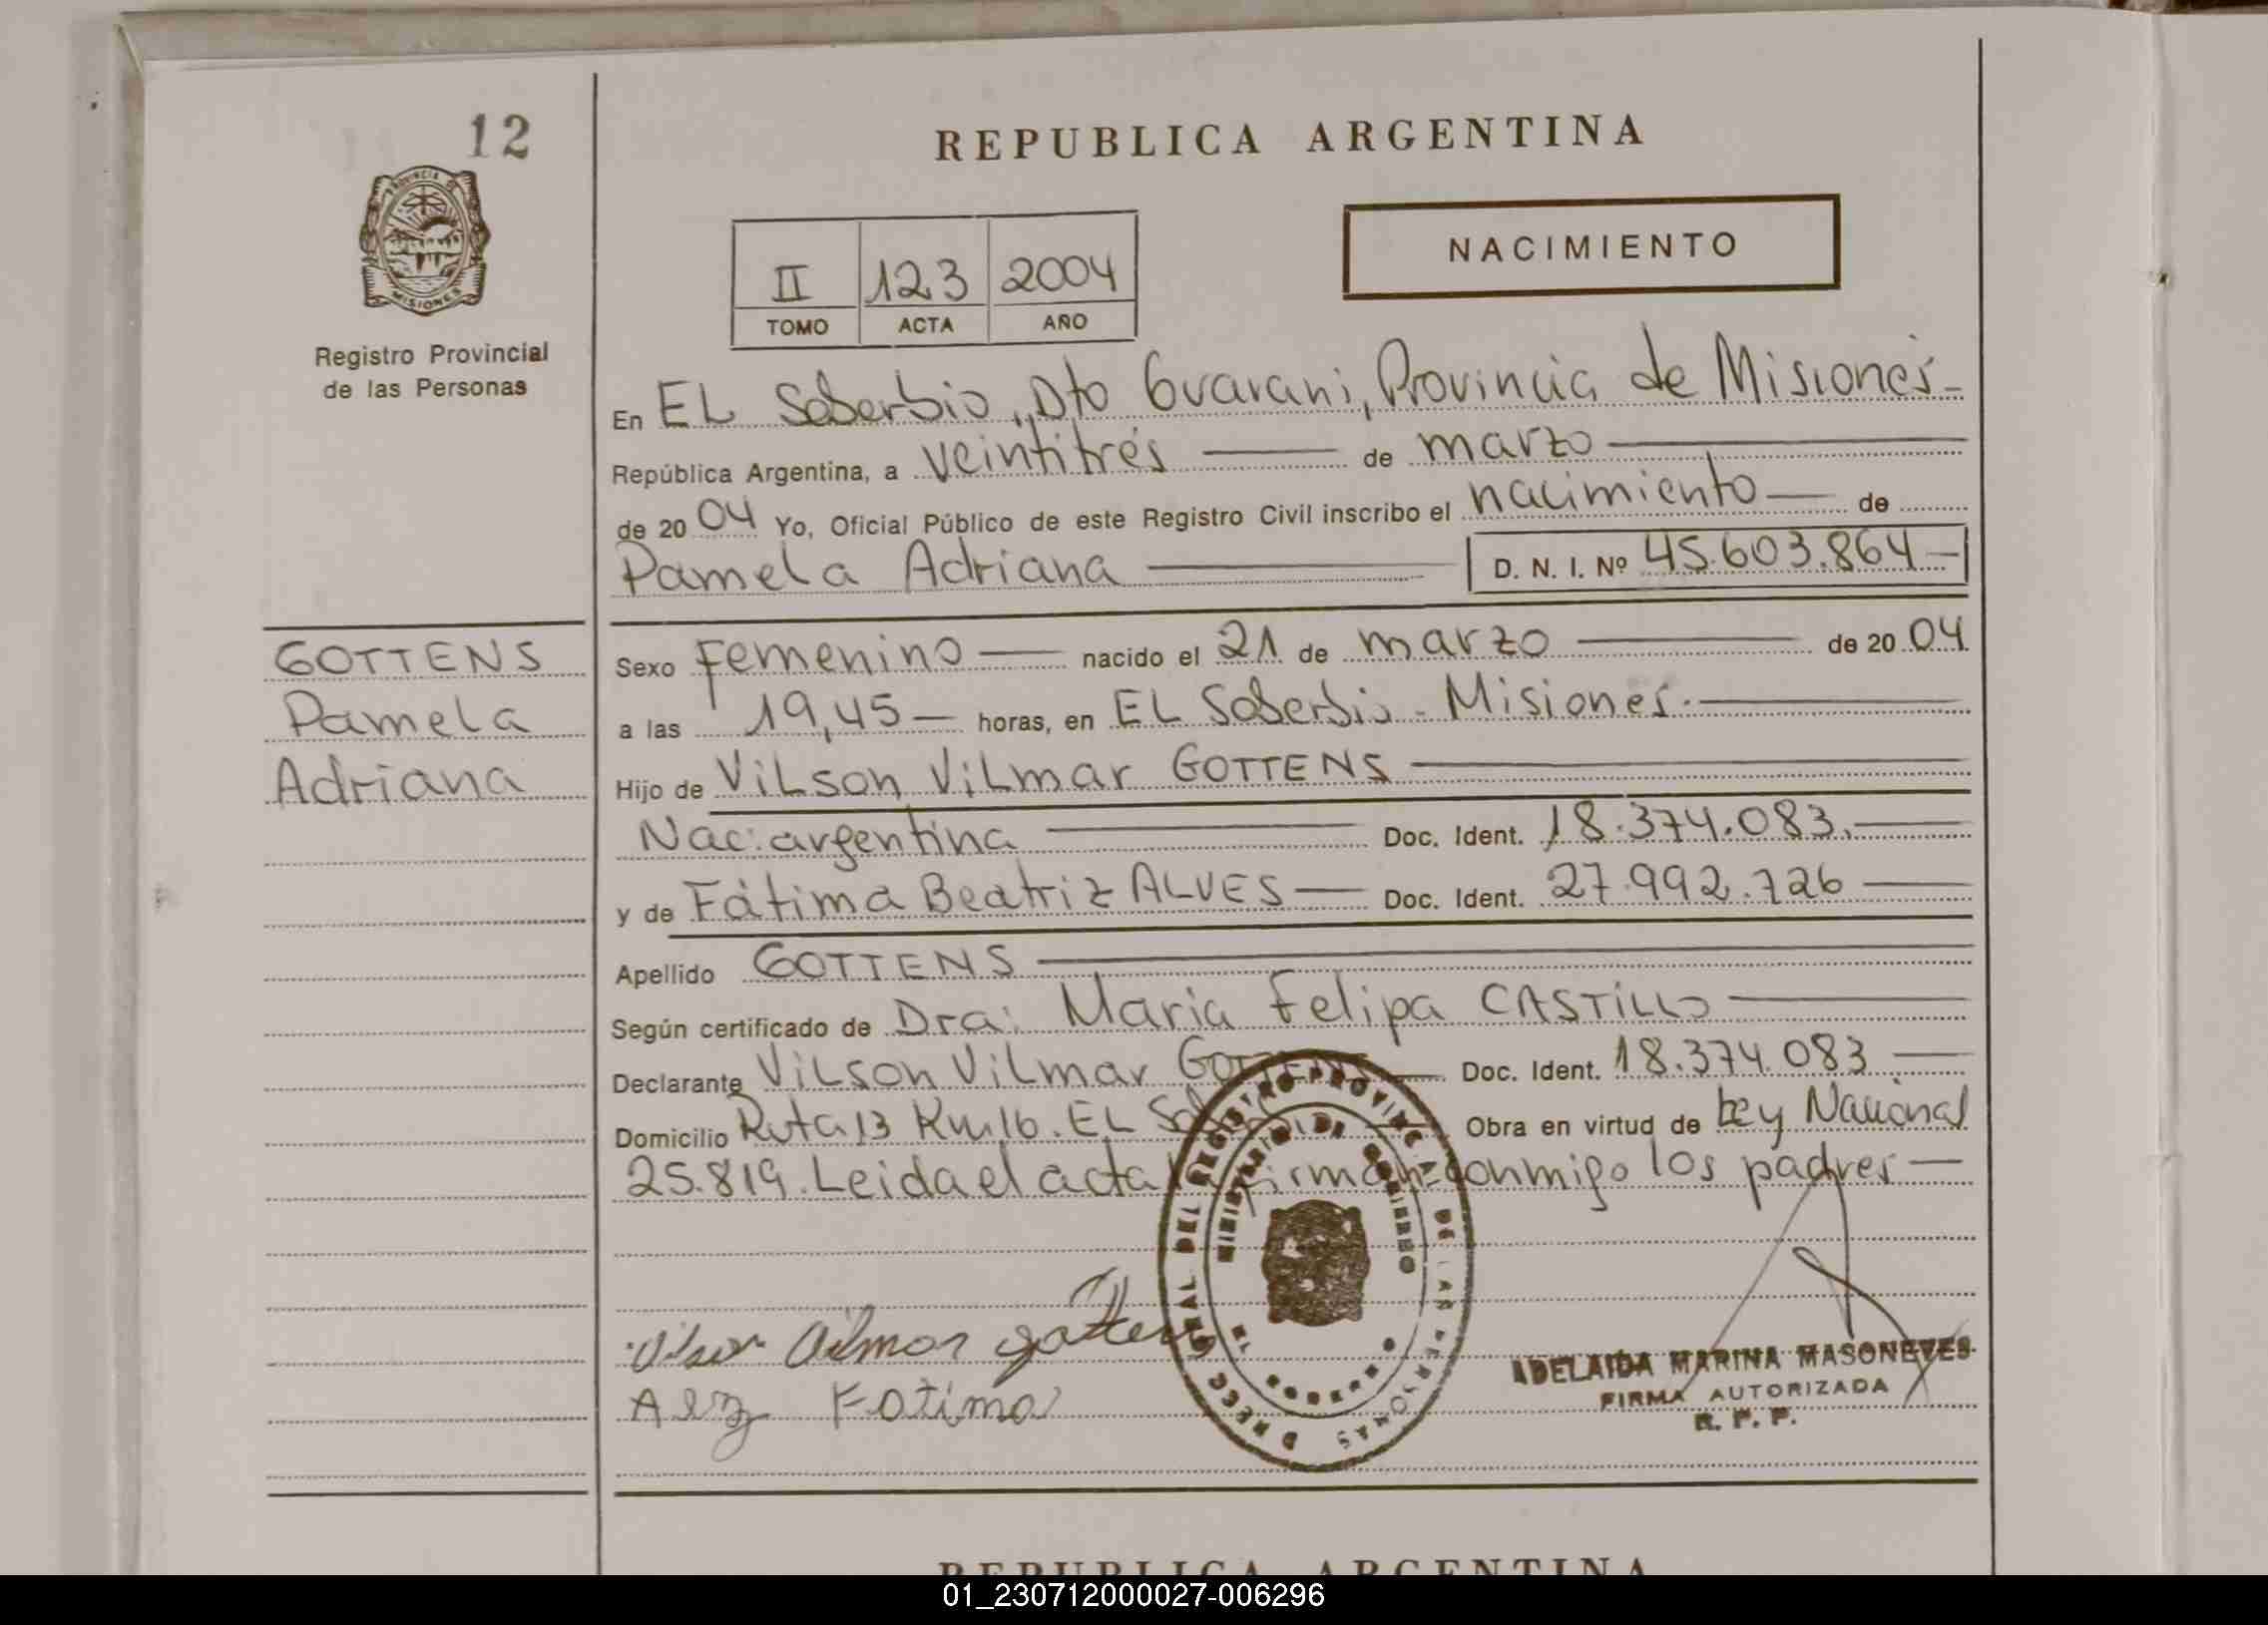 12
REPUBLICA ARGENTINA
PROVINCIA DE
MISIONES
Registro Provincial
de las Personas
NACIMIENTO
II 123 2004
TOMO ACTA AÑO
En EL Soberbio, Dto Guarani, Provincia de Misiones-
República Argentina, a veintitrés de marzo
de 2004 Yo, Oficial Público de este Registro Civil inscribo el nacimiento de
Pamela Adriana D. N. I. Nº 45.603.864-
GOTTENS
Pamela
Adriana
Sexo Femenino nacido el 21 de marzo de 2004
a las 19,45 horas, en EL Soberbio - Misiones.
Hijo de ViLson ViLmar GOTTENS
Nac: argentina Doc. Ident. 18.374.083.
y de Fátima Beatriz ALVES Doc. Ident. 27.992.726
Apellido GOTTENS
Según certificado de Dra: Maria Felipa CASTiLLO
Declarante ViLson ViLmar GOTTENS Doc. Ident. 18.374.083
Domicilio Ruta 13 Km 16. EL Soberbio Obra en virtud de Ley Nacional
25.819. Leida el acta firman conmigo los padres
DIRECC GRAL DEL REGISTRO PROVINCIAL DE LAS PERSONAS
MINISTERIO DE GOBIERNO
Vilmar gottens
Fatima
ADELAIDA MARINA MASONEVES
FIRMA AUTORIZADA
R. P. P.
REPUBLICA ARGENTINA
01_230712000027-006296